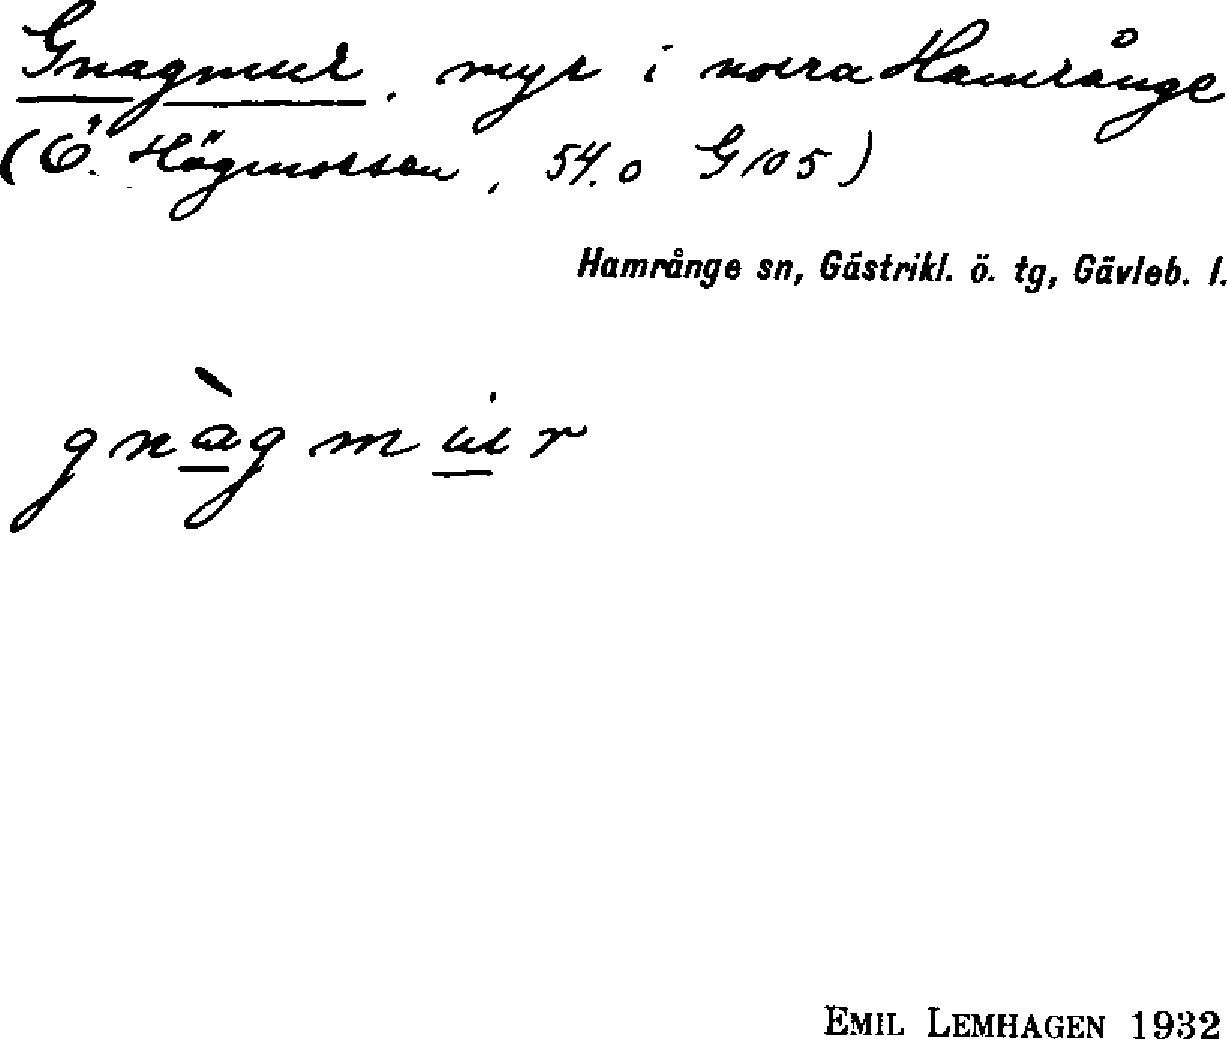 Gnagmur, myr i norra Hamrånge
(Ö. Högmossen, 54.0 G 105)
Hamrånge sn, Gästrikl. ö. tg, Gävleb. l.
gnàgmur
EMIL LEMHAGEN 1932